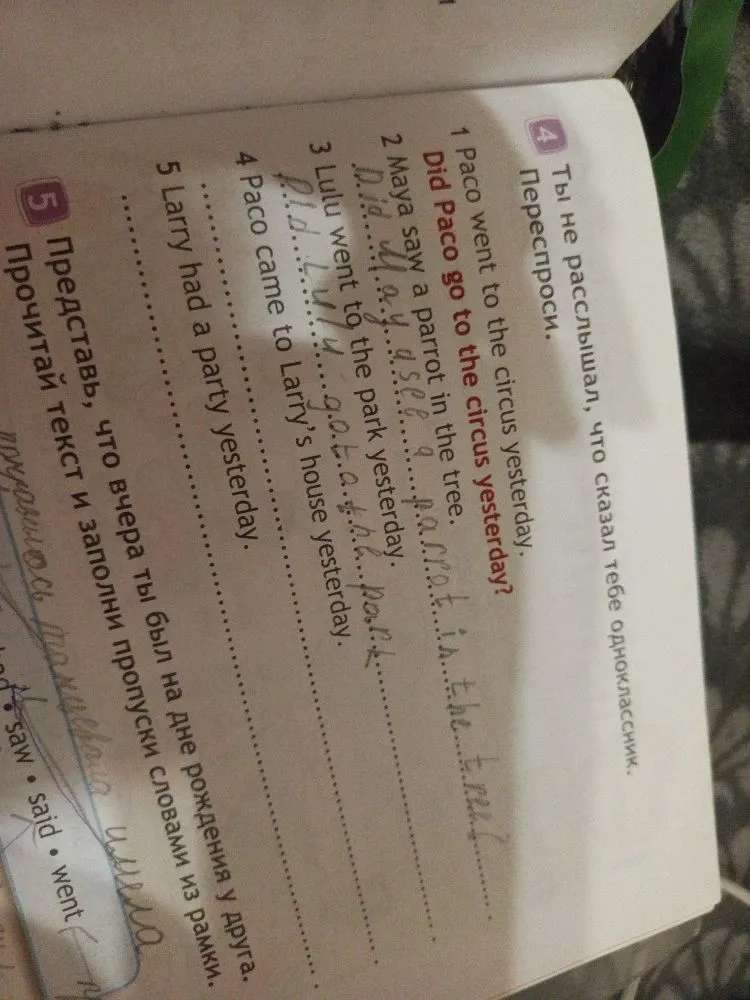 4 Ты не расслышал, что сказал тебе одноклассник.
Переспроси.
1 Paco went to the circus yesterday.
Did Paco go to the circus yesterday?
2 Maya saw a parrot in the tree.
Did Maya see a parrot in the tree?
3 Lulu went to the park yesterday.
Did Lulu go t a the park
4 Paco came to Larry's house yesterday.
5 Larry had a party yesterday.
5 Представь, что вчера ты был на дне рождения у друга.
Прочитай текст и заполни пропуски словами из рамки.
имела
saw • said • went